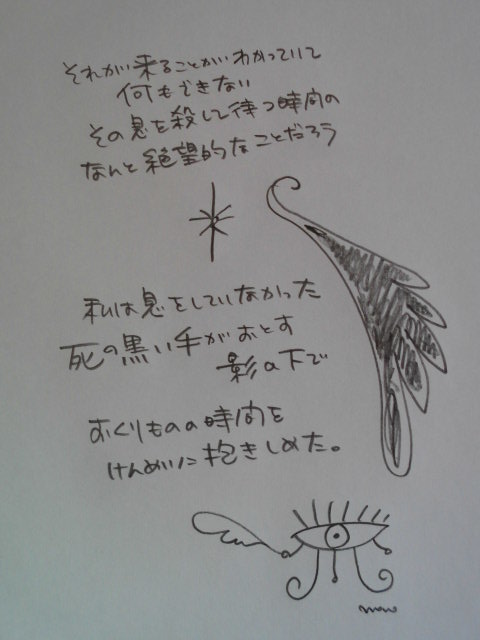 それが来ることがわかっていて
何もできない
その息を殺して待つ時間の
なんと絶望的なことだろう
私は息をしていなかった
死の黒い手がおとす
影の下で
おくりものの時間を
けんめいに抱きしめた。